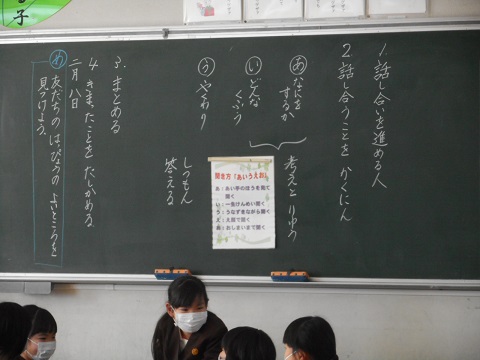 1. 話し合いを進める人
2. 話し合うことを かくにん
あ なにをするか
い どんなくふう
う やわり
考えとりゆう
しつもん
答える
3. まとめる
4. きまったことを たしかめる
二月 八日
め 友だちの はっぴょうの よいところを見つけよう。
聞き方「あいうえお」
あ：あい手のほうを見て聞く
い：一生けんめい聞く
う：うなずきながら聞く
え：えがおで聞く
お：おしまいまで聞く
子